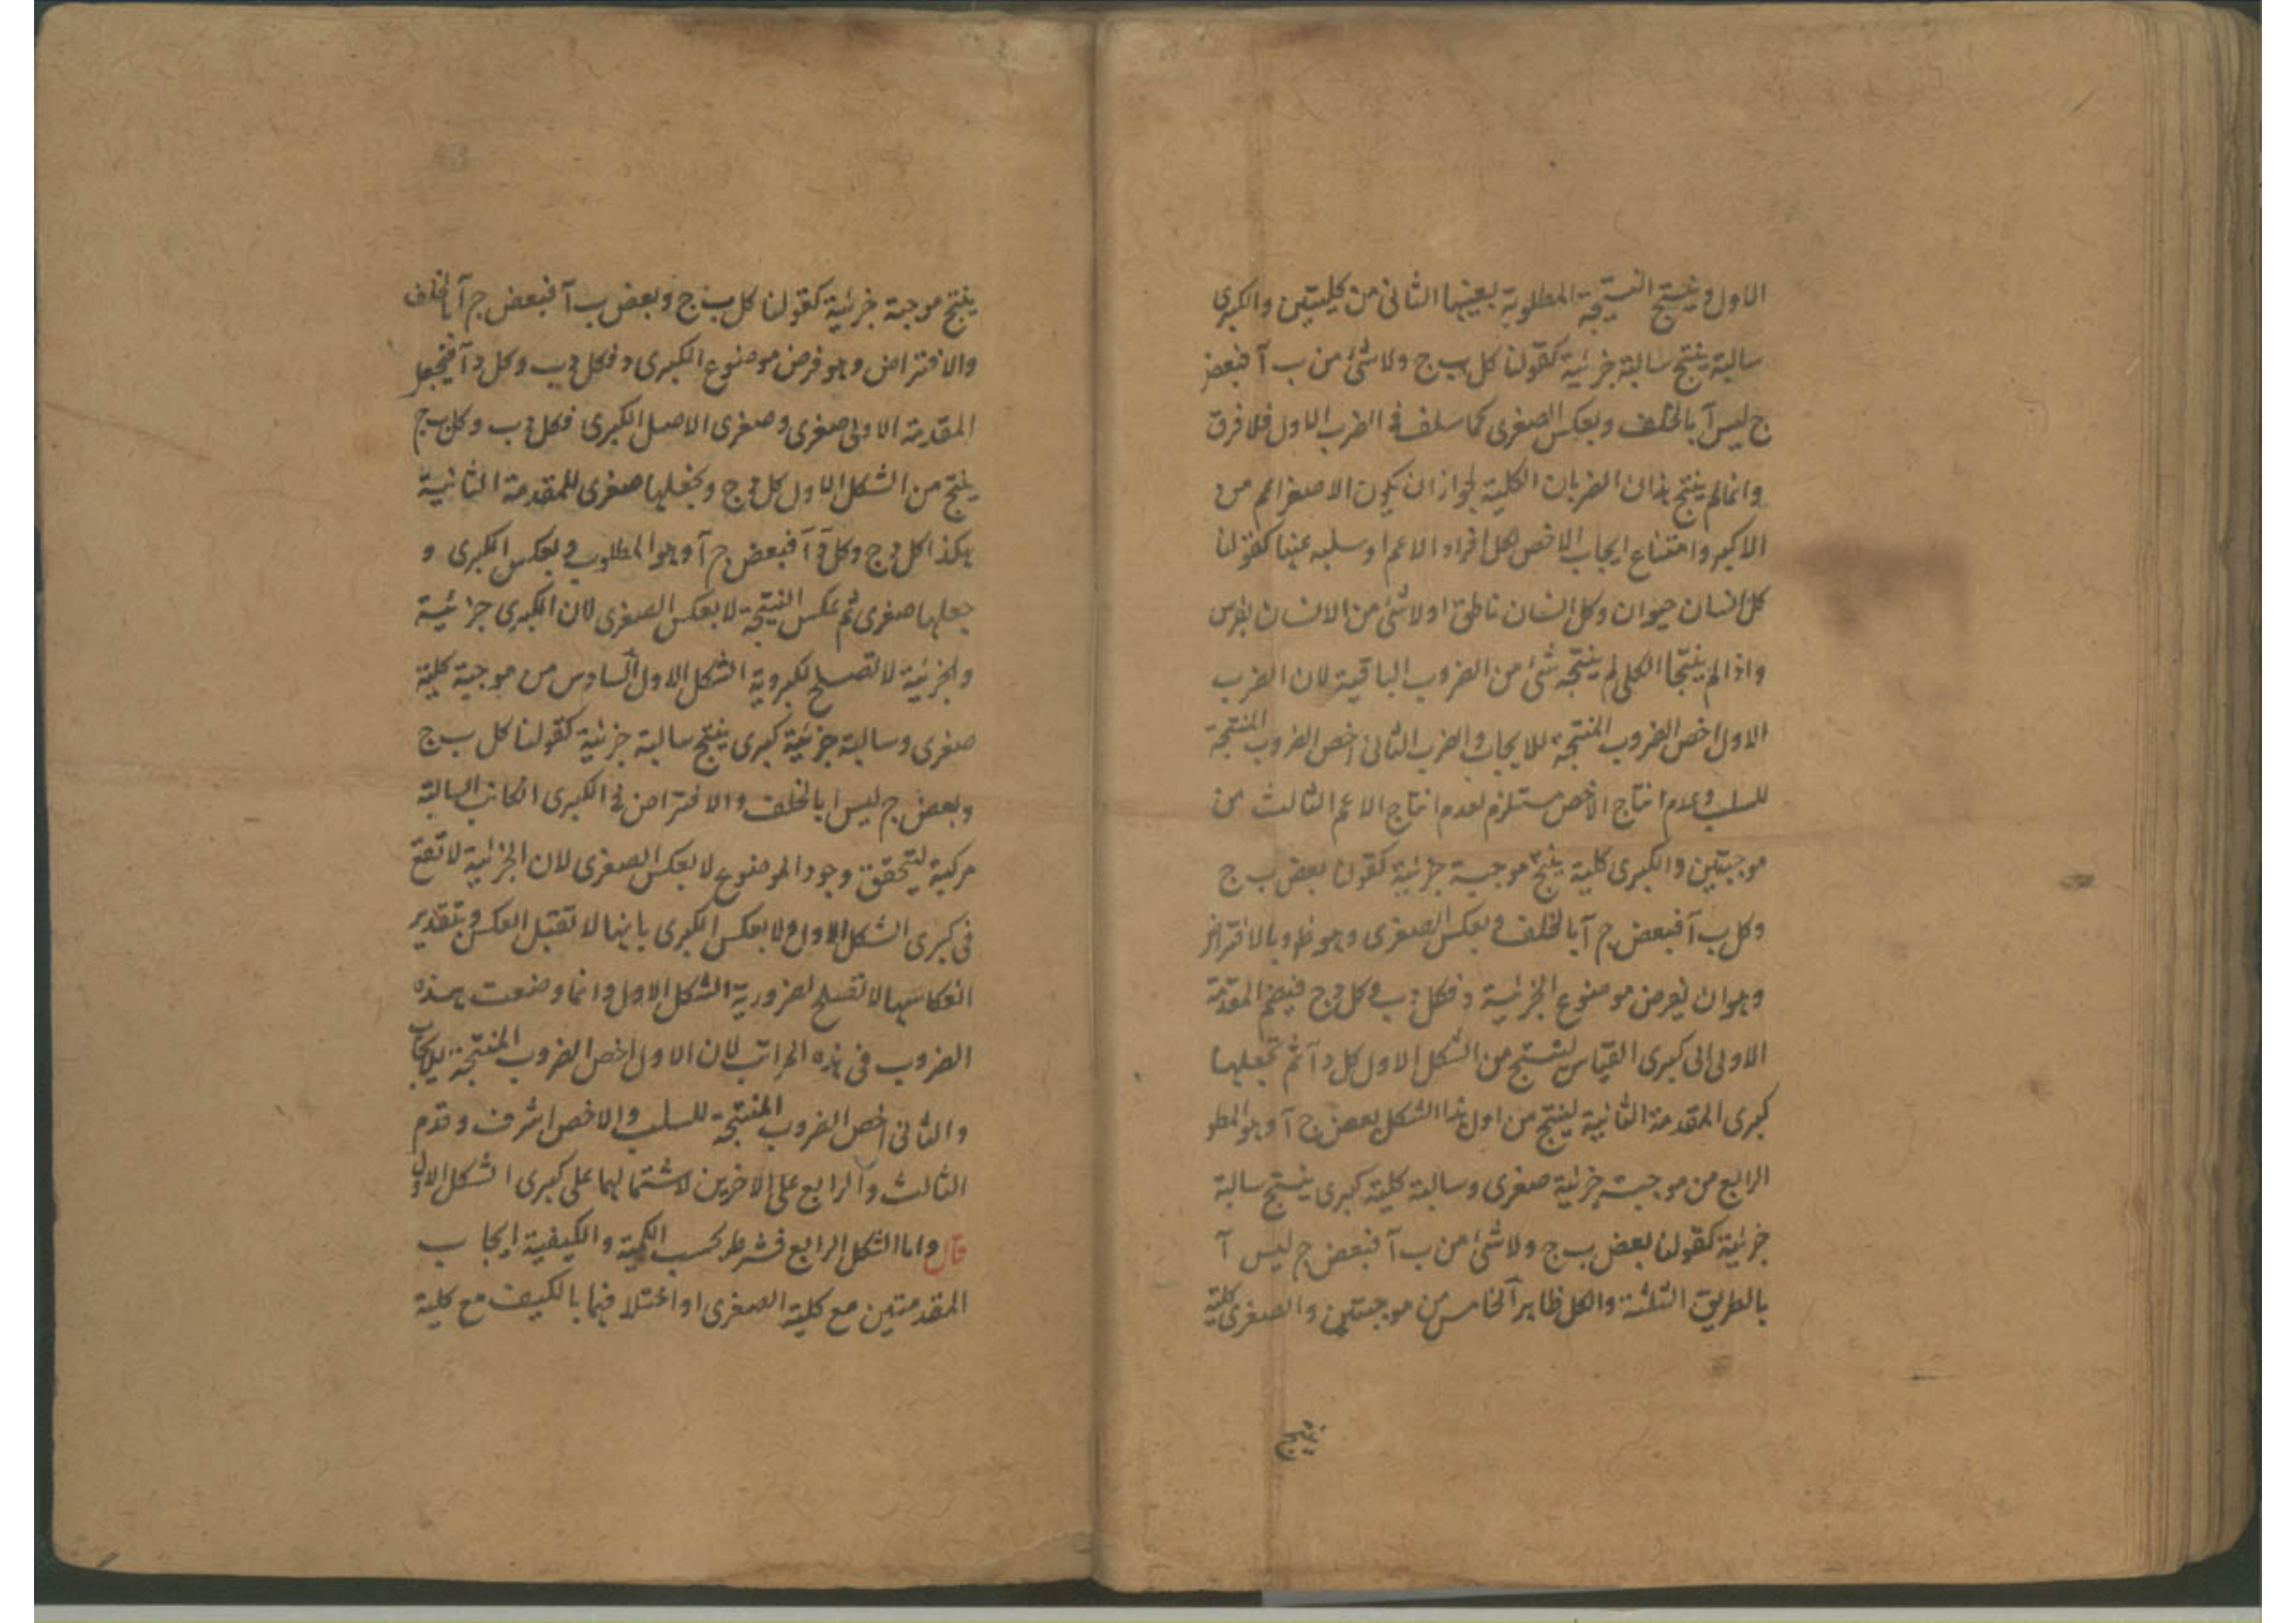 الاول وينتج النتيجة المطلوبة بعينها الثانى من كليتين والكبرى
سالبة ينتج سالبة جزئية كقولنا كل ب ج ولا شئ من ب آ فبعض
ج ليس آ بالخلف وبعكس الصغرى كما سلف فى الضرب الاول فلا فرق
وانما لم ينتج هذان الضربان الكلية لجواز ان يكون الاصغر اعم من
الاكبر وامتناع ايجاب الاخص لكل افراد الاعم او سلبه عنها كقولنا
كل انسان حيوان وكل انسان ناطق او لا شئ من الانسان بفرس
واذا لم ينتجا الكلى لم ينتجه شئ من الضروب الباقية لان الضرب
الاول اخص الضروب المنتجة للايجاب والضرب الثانى اخص الضروب المنتجة
للسلب وعدم انتاج الاخص مستلزم لعدم انتاج الاعم الثالث من
موجبتين والكبرى كلية ينتج موجبة جزئية كقولنا بعض ب ج
وكل ب آ فبعض ج آ بالخلف وبعكس الصغرى وهو ظ وبالافتراض
وهو ان يفرض موضوع الجزئية د فكل د ب وكل د ج فيضم المقدمة
الاولى الى كبرى القياس لينتج من الشكل الاول كل د آ ثم تجعلها
كبرى المقدمة الثانية لينتج من اول هذا الشكل بعض ج آ وهو المط
الرابع من موجبة جزئية صغرى وسالبة كلية كبرى ينتج سالبة
جزئية كقولنا بعض ب ج ولا شئ من ب آ فبعض ج ليس آ
بالطريق الثلثة والكل ظاهر الخامس من موجبتين والصغرى كلية
ينتج
ينتج موجبة جزئية كقولنا كل ب ج وبعض ب آ فبعض ج آ بالخلف
والافتراض وهو فرض موضوع الكبرى د فكل د ب وكل د آ فيجعل
المقدمة الاولى صغرى وصغرى الاصل الكبرى فكل د ب وكل ب ج
ينتج من الشكل الاول كل د ج وتجعلها صغرى للمقدمة الثانية
هكذا كل د ج وكل د آ فبعض ج آ وهو المطلوب وبعكس الكبرى و
جعلها صغرى ثم عكس النتيجة لا بعكس الصغرى لان الكبرى جزئية
والجزئية لا تصلح لكبروية الشكل الاول السادس من موجبة كلية
صغرى وسالبة جزئية كبرى ينتج سالبة جزئية كقولنا كل ب ج
وبعض ج ليس ا بالخلف والافتراض فى الكبرى انكانت السالبة
مركبة ليتحقق وجود الموضوع لا بعكس الصغرى لان الجزئية لا تقع
فى كبرى الشكل الاول ولا بعكس الكبرى بانها لا تقبل العكس وبتقدير
انعكاسها لا تصلح لصزورية الشكل الاول وانما وضعت هذه
الضروب فى هذه المراتب لان الاول اخص الضروب المنتجة للايجاب
والثانى اخص الضروب المنتجة للسلب والاخص اشرف وقدم
الثالث والرابع على الاخرين لاشتمالهما على كبرى الشكل الاول
قال واما الشكل الرابع فشرطه بحسب الكمية والكيفية ايجاب
المقدمتين مع كلية الصغرى او اختلافهما بالكيف مع كلية